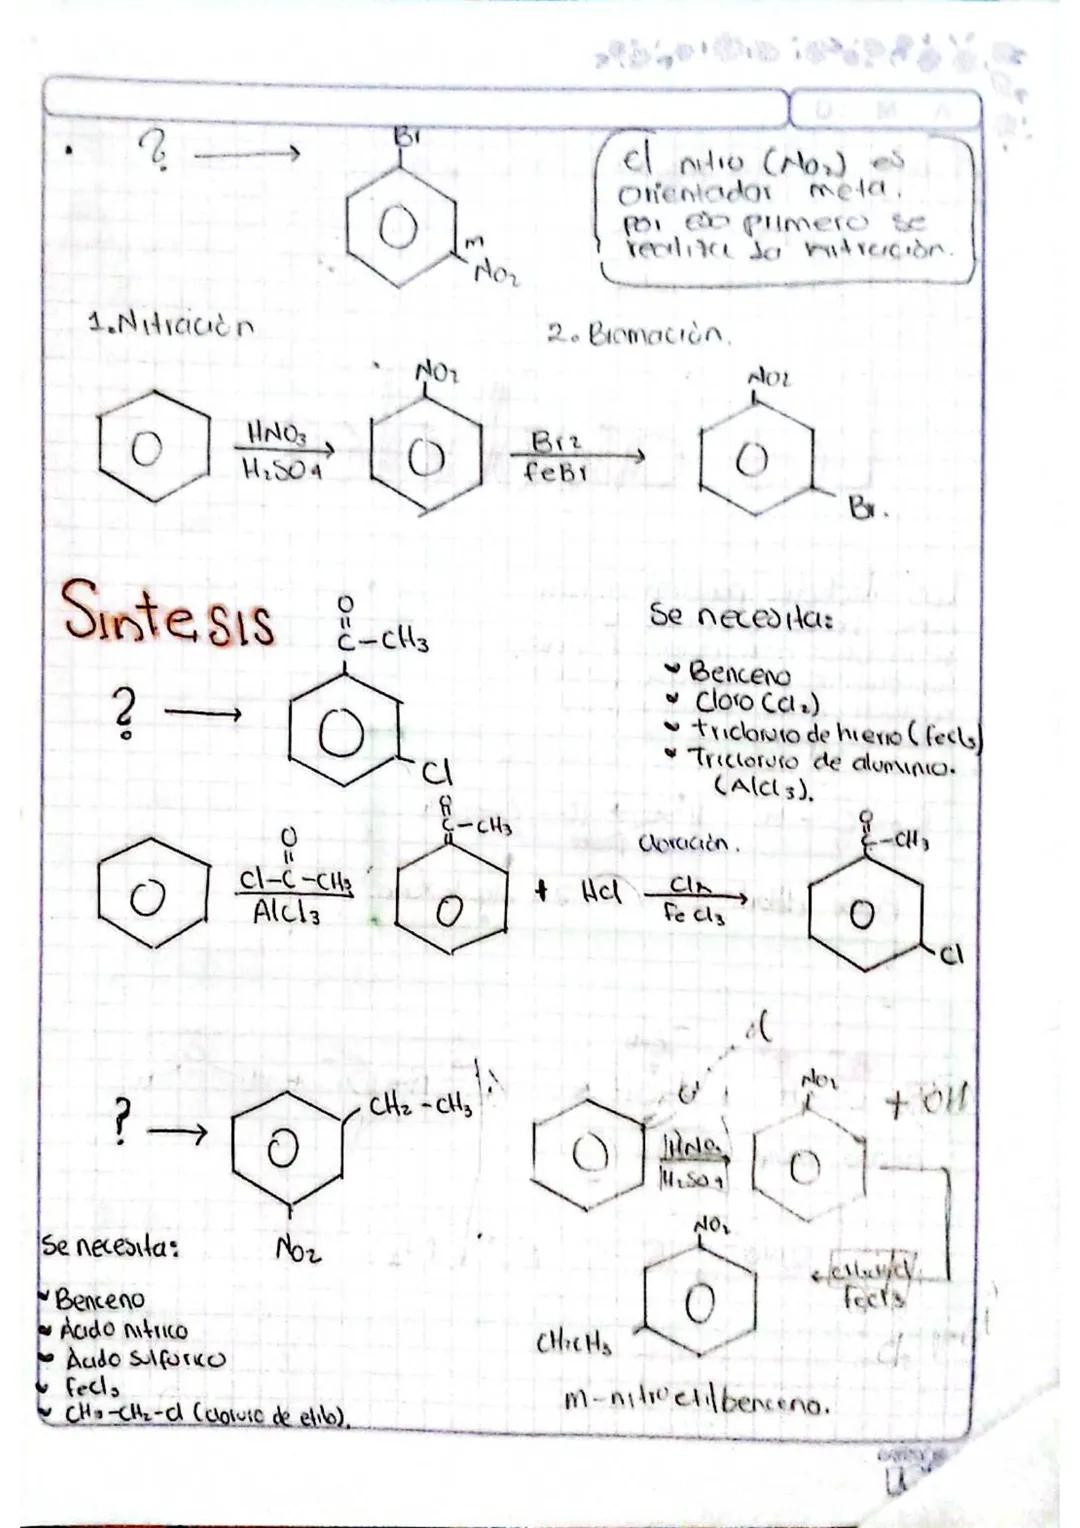 ? →
Br
m
NO2
El nitro (NO2) es
orientador meta.
por eso primero se
realiza la nitración.
1. Nitración
2. Bromación.
HNO3
H2SO4
NO2
Br2
FeBr
NO2
Br.
Sintesis
O
C-CH3
? →
Cl
Se necesita:
Benceno
Cloro (Cl2)
tricloruro de hierro (FeCl3)
Tricloruro de aluminio.
(AlCl3).
O
Cl-C-CH3
AlCl3
O
C-CH3
+ HCl
Cloración.
Cl2
FeCl3
O
C-CH3
Cl
? →
CH2-CH3
NO2
HNO3
H2SO4
NO2
+ OH
Se necesita:
Benceno
Acido nitrico
Acido Sulfurico
FeCl3
CH3-CH2-Cl (cloruro de etilo).
FeCl3
NO2
CH2CH3
m-nitroetilbenceno.